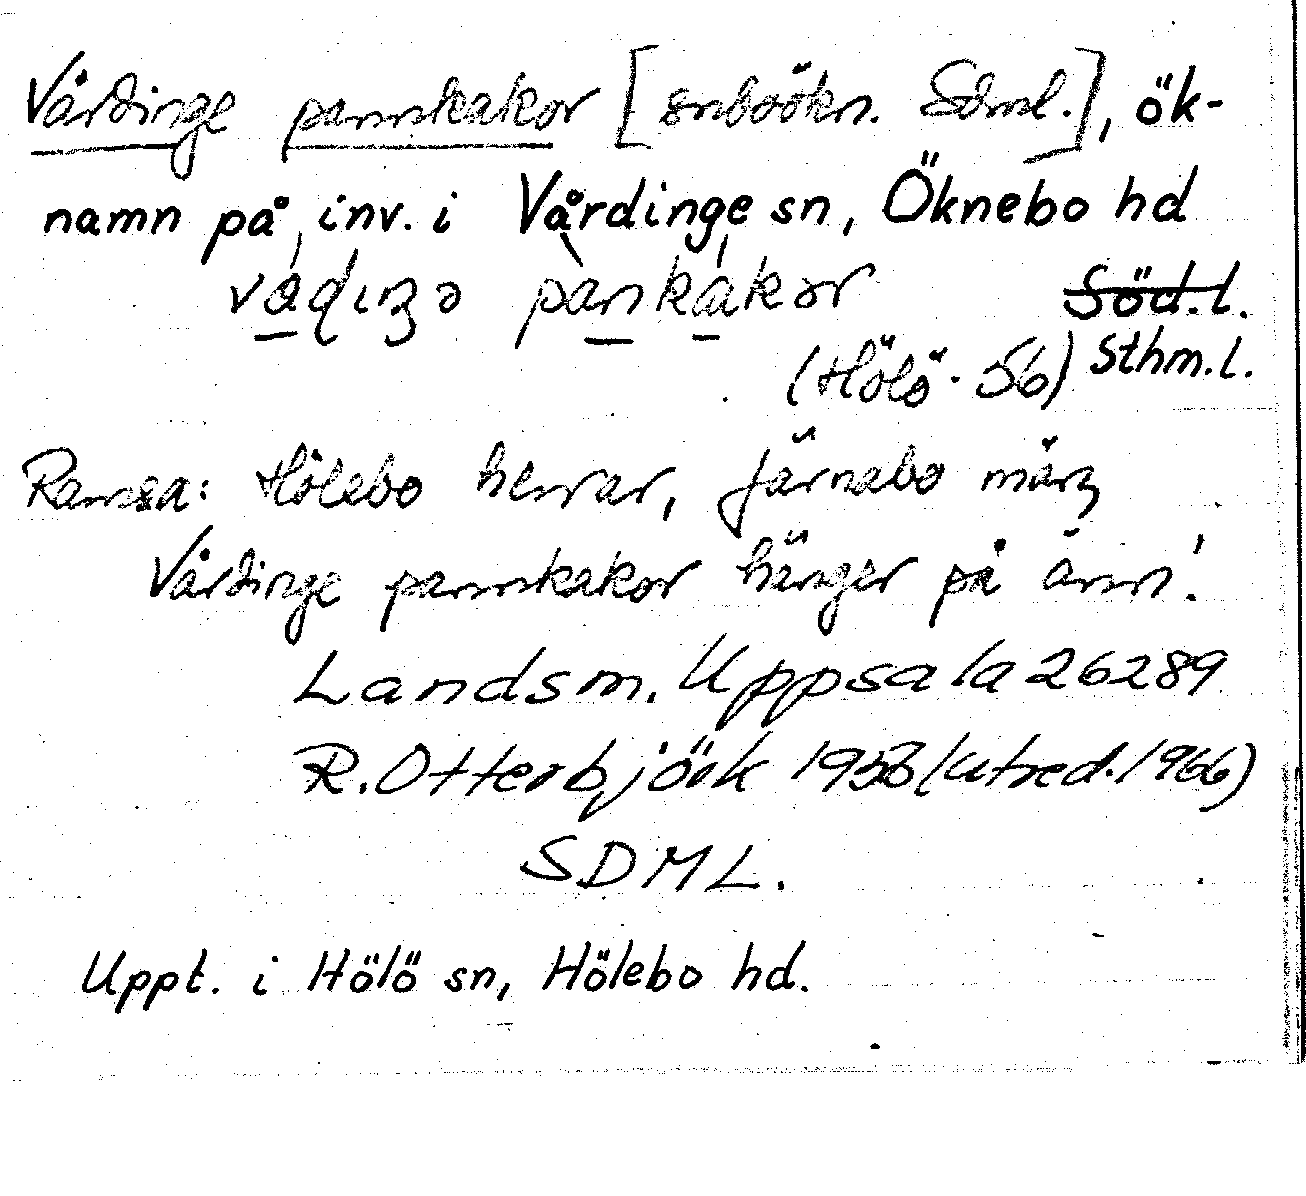 Vårdinge pannkakor [snboökn. Sdml.], ök-
namn på inv. i Vårdinge sn, Öknebo hd
pankakor Söd.l.
(Hölö. 56) Sthm.l.
Ramsa: Hölebo herrar, Järnabo märz
Vårdinge pannkakor hänger på ärm!
Landsm. Uppsala 26289
R. Otterbjörk 1956 (utred. 1966)
SDML.
Uppt. i Hölö sn, Hölebo hd.